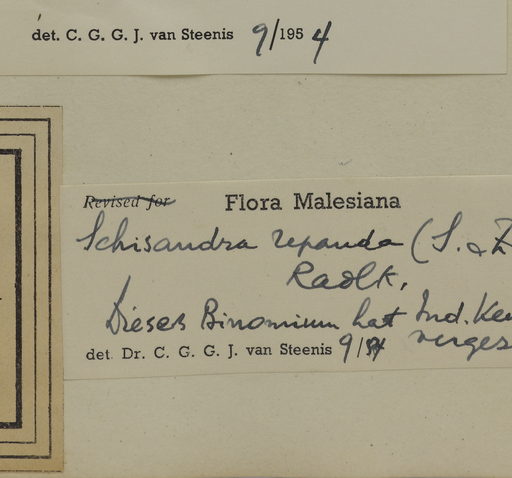 det. C. G. G. J. van Steenis 9/1954
Revised for Flora Malesiana
Schisandra repanda (S. & Z
Radlk.
Dieses Binomium hat Ind. Kew
verges
det. Dr. C. G. G. J. van Steenis 9/54